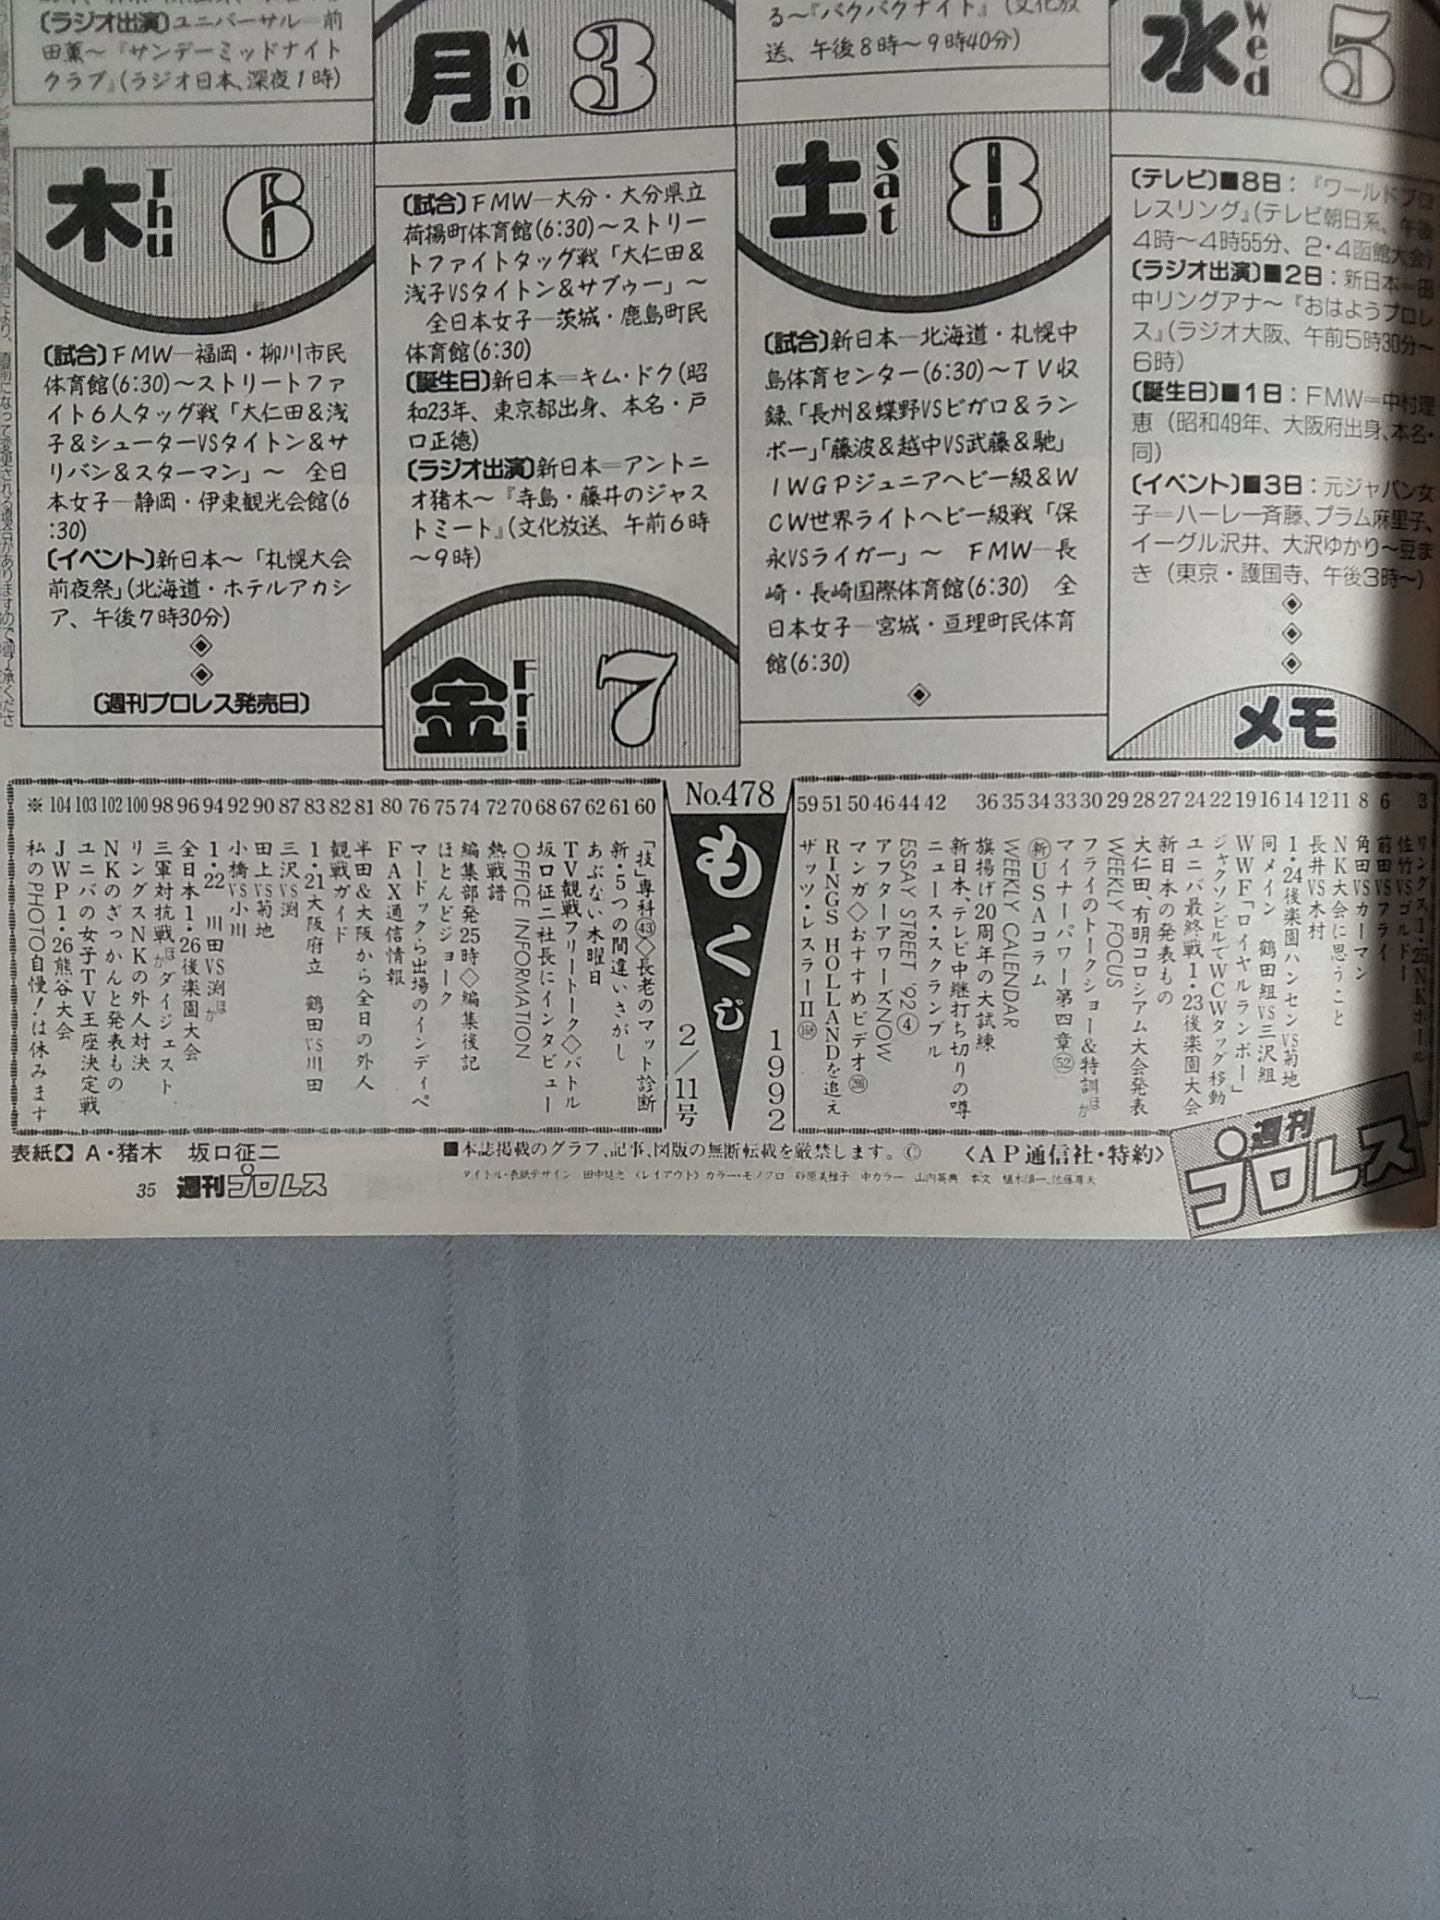 〔ラジオ出演〕ユニバーサル＝前
田薫～『サンデーミッドナイト
クラブ』(ラジオ日本、深夜1時)
木 Thu 6
〔試合〕FMW―福岡・柳川市民
体育館(6:30)～ストリートファ
イト6人タッグ戦「大仁田&浅
子&シューターVSタイトン&サ
リバン&スターマン」～　全日
本女子―静岡・伊東観光会館(6
:30)
〔イベント〕新日本～「札幌大会
前夜祭」(北海道・ホテルアカシ
ア、午後7時30分)
〔週刊プロレス発売日〕
月 Mon 3
〔試合〕FMW―大分・大分県立
荷揚町体育館(6:30)～ストリー
トファイトタッグ戦「大仁田&
浅子VSタイトン&サブゥー」～
全日本女子―茨城・鹿島町民
体育館(6:30)
〔誕生日〕新日本＝キム・ドク(昭
和23年、東京都出身、本名・戸
口正徳)
〔ラジオ出演〕新日本＝アントニ
オ猪木～『寺島・藤井のジャス
トミート』(文化放送、午前6時
～9時)
金 Fri 7
る～『バクバクナイト』(文化放
送、午後8時～9時40分)
土 Sat 8
〔試合〕新日本―北海道・札幌中
島体育センター(6:30)～TV収
録、「長州&蝶野VSビガロ&ラン
ボー」「藤波&越中VS武藤&馳」
IWGPジュニアヘビー級&W
CW世界ライトヘビー級戦「保
永VSライガー」～　FMW―長
崎・長崎国際体育館(6:30)　全
日本女子―宮城・亘理町民体育
館(6:30)
水 Wed 5
〔テレビ〕■8日：『ワールドプロ
レスリング』(テレビ朝日系、午後
4時～4時55分、2・4函館大会)
〔ラジオ出演〕■2日：新日本＝田
中リングアナ～『おはようプロレ
ス』(ラジオ大阪、午前5時30分～
6時)
〔誕生日〕■1日：FMW＝中村理
恵(昭和49年、大阪府出身、本名・
同)
〔イベント〕■3日：元ジャパン女
子＝ハーレー斉藤、プラム麻里子、
イーグル沢井、大沢ゆかり～豆ま
き(東京・護国寺、午後3時～)
メモ
No.478
もくじ
1992
2/11号
3 リングス1・25NKホール
佐竹VSゴルドー
6 前田VSフライ
8 角田VSカーマン
11 NK大会に思うこと
12 長井VS木村
14 1・24後楽園ハンセンVS菊地
16 同メイン　鶴田組VS三沢組
19 WWF「ロイヤルランボー」
22 ジャクソンビルでWCWタッグ移動
24 ユニバ最終戦1・23後楽園大会
27 新日本の発表もの
28 大仁田、有明コロシアム大会発表
29 WEEKLY FOCUS
30 フライのトークショー&特訓ほか
33 マイナーパワー第四章52
34 新USAコラム
35 WEEKLY CALENDAR
36 旗揚げ20周年の大試練
新日本、テレビ中継打ち切りの噂
42 ニュース・スクランブル
44 ESSAY STREET '92④
46 アフターアワーズNOW
50 マンガ◇おすすめビデオ
51 RINGS HOLLANDを追え
59 ザッツ・レスラーII
60 「技」専科43◇長老のマット診断
61 新・5つの間違いさがし
62 あぶない木曜日
67 TV観戦フリートーク◇バトル
68 坂口征二社長にインタビュー
70 OFFICE INFORMATION
72 熱戦譜
74 編集部発25時◇編集後記
75 ほとんどジョーク
76 マードックら出場のインディペ
80 FAX通信情報
81 半田&大阪から全日の外人
82 観戦ガイド
83 1・21大阪府立　鶴田VS川田
87 三沢VS渕
90 田上VS菊地
92 小橋VS小川
94 1・22　川田VS渕ほか
96 全日本1・26後楽園大会
98 三軍対抗戦ほかダイジェスト
100 リングスNKの外人対決
102 NKのざっかんと発表もの
103 ユニバの女子TV王座決定戦
104 JWP1・26熊谷大会
※ 私のPHOTO自慢！は休みます
表紙◆A・猪木　坂口征二
■本誌掲載のグラフ、記事、図版の無断転載を厳禁します。Ⓒ
〈AP通信社・特約〉
35 週刊プロレス
週刊プロレス